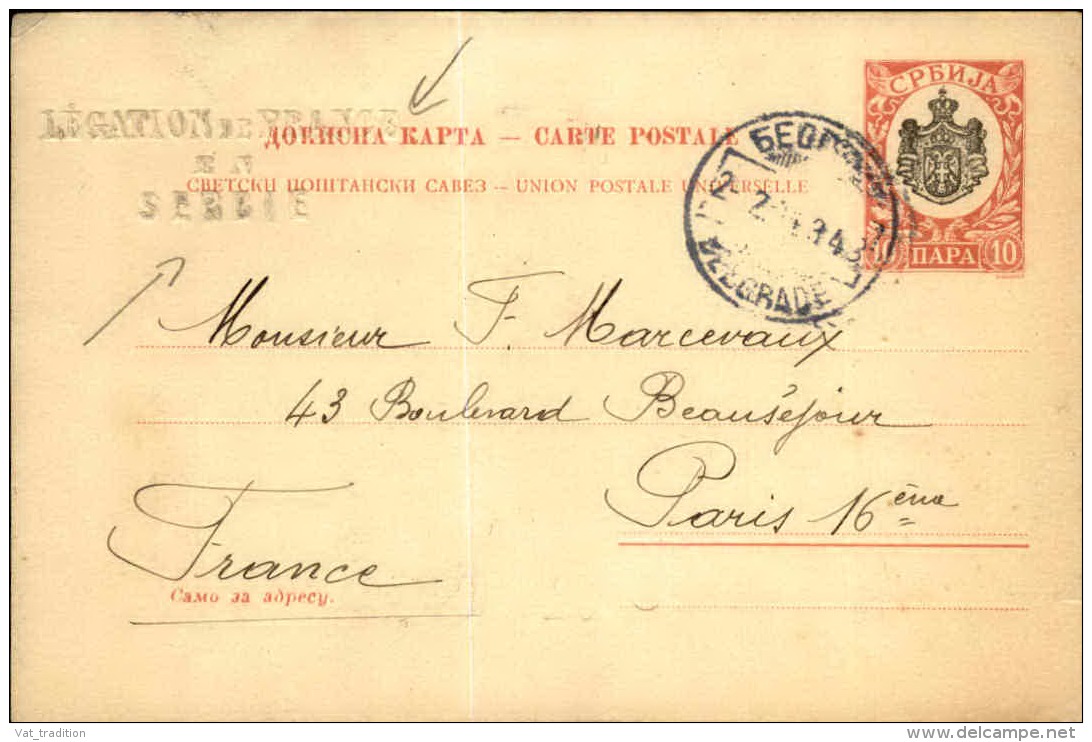 СРБИЈА
LÉGATION DE FRANCE
EN
SERBIE
ДОПИСНА КАРТА — CARTE POSTALE
СВЕТСКИ ПОШТАНСКИ САВЕЗ — UNION POSTALE UNIVERSELLE
2
BEOGRADE
10 ПАРА 10
Monsieur F. Marcevaux
43 Boulevard Beauséjour
Paris 16ème
France
Само за адресу.
Vat_tradition
delcampe.net